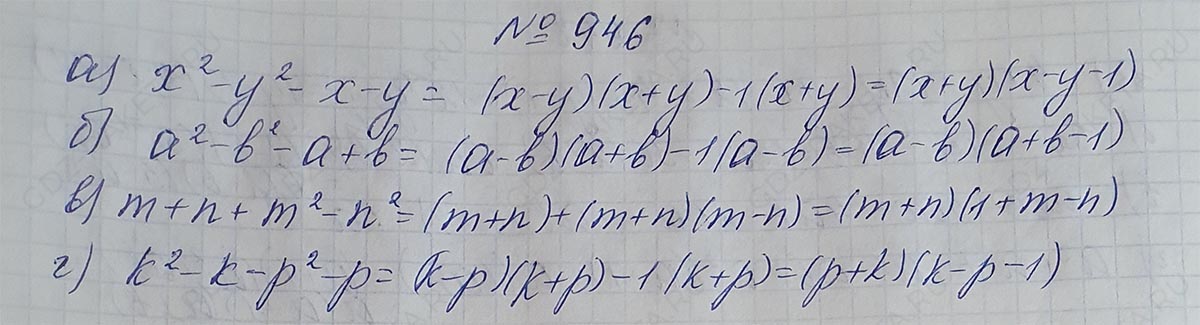 № 946
а) x² - y² - x - y = (x-y)(x+y) - 1(x+y) = (x+y)(x-y-1)
б) a² - b² - a + b = (a-b)(a+b) - 1(a-b) = (a-b)(a+b-1)
в) m + n + m² - n² = (m+n) + (m+n)(m-n) = (m+n)(1+m-n)
г) k² - k - p² - p = (k-p)(k+p) - 1(k+p) = (p+k)(k-p-1)